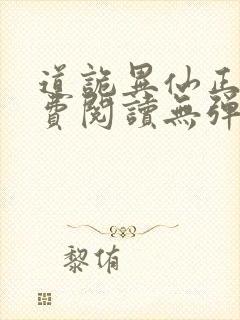 道詭異仙正
費閱讀無彈
黎侑